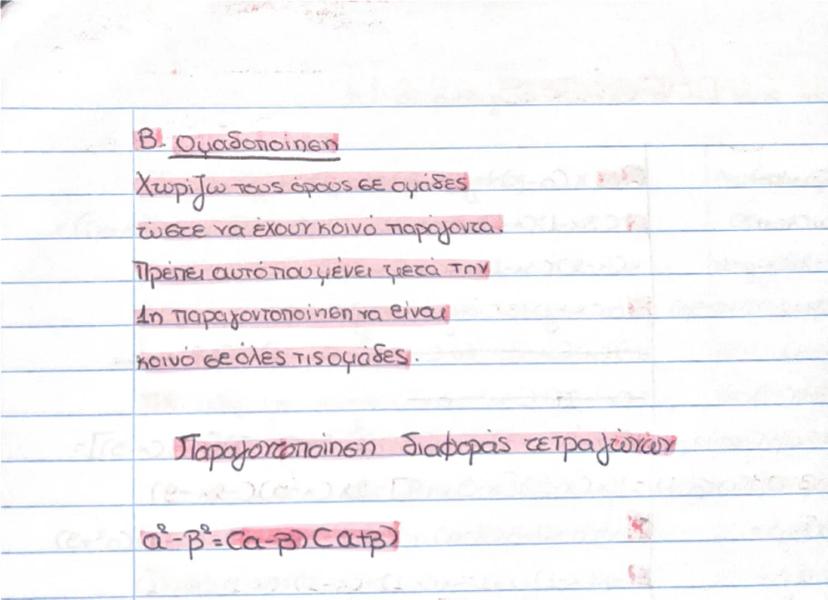 Β. Ομαδοποίηση
Χωρίζω τους όρους σε ομάδες
ώστε να έχουν κοινό παράγοντα.
Πρέπει αυτό που μένει μετά την
1η παραγοντοποίηση να είναι
κοινό σε όλες τις ομάδες.
Παραγοντοποίηση διαφοράς τετραγώνων
α²-β²=(α-β)(α+β)